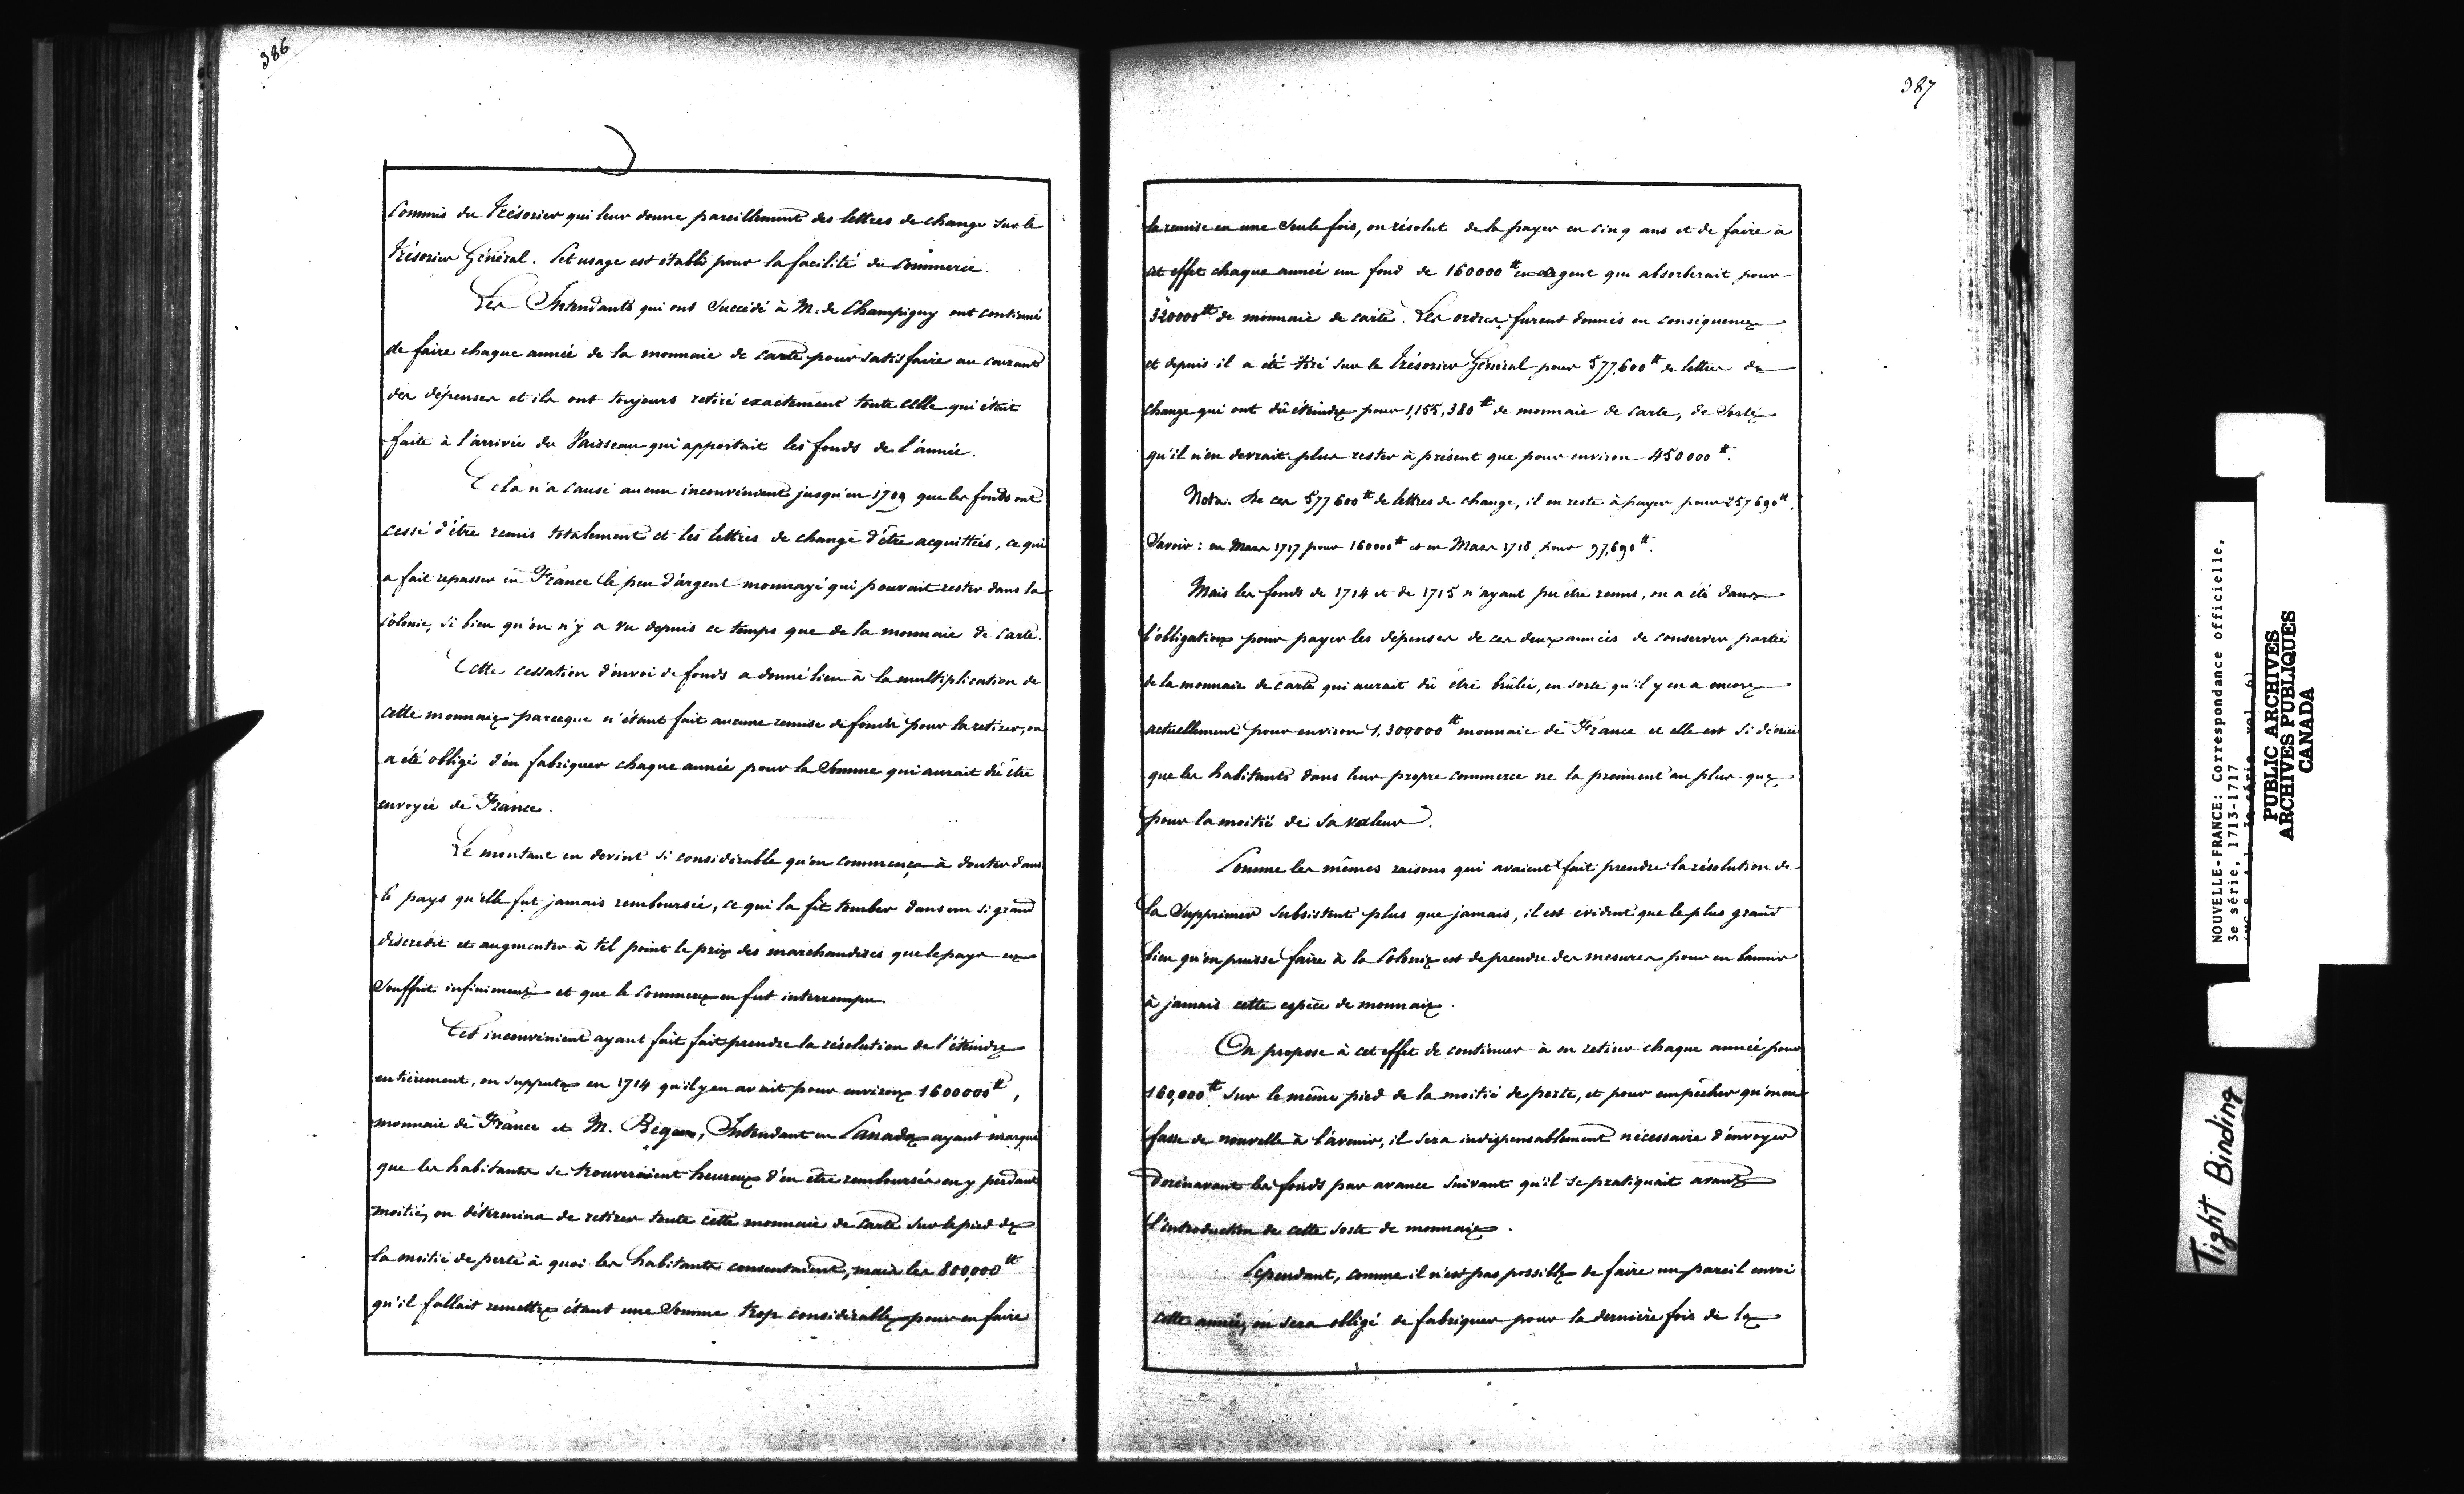 386
Commis du Trésorier qui leur donne pareillement des lettres de change sur le
Trésorier Général. Cet usage est établi pour la facilité du Commerce.
Les Intendants qui ont Succédé à M. de Champigny ont continué
de faire chaque année de la monnaie de carte pour satisfaire au courant
des dépenses et ils ont toujours retiré exactement toute celle qui était
faite à l'arrivée du Vaisseau qui apportait les fonds de l'année.
Cela n'a causé aucun inconvénient jusqu'en 1709 que les fonds ont
cessé d'être remis totalement et les lettres de change d'être acquittées, ce qui
a fait repasser en France le peu d'argent monnayé qui pouvait rester dans la
Colonie, si bien qu'on n'y a vu depuis ce temps que de la monnaie de carte.
Cette cessation d'envoi de fonds a donné lieu à la multiplication de
cette monnaie parceque n'étant fait aucune remise de fonds pour la retirer, on
a été obligé d'en fabriquer chaque année pour la Somme qui aurait dû être
envoyée de France.
Le montant en devint si considérable qu'on commença à douter dans
le pays qu'elle fut jamais remboursée, ce qui la fit tomber dans un si grand
discredit et augmenter à tel point le prix des marchandises que le pays en
Souffrit infiniment et que le Commerce en fut interrompu.
Cet inconvénient ayant fait fait prendre la résolution de l'éteindre
entièrement, on supputa en 1714 qu'il y en avait pour environ 1600000 ₶,
monnaie de France et M. Bégon, Intendant en Canada ayant marqué
que les habitants se trouveraient heureux d'en être remboursés en y perdant
moitié, on détermina de retirer toute cette monnaie de carte sur le pied de
la moitié de perte à quoi les habitants consentaient, mais les 800,000 ₶
qu'il fallait remettre étant une Somme trop considérable pour en faire
387
la remise en une Seule fois, on résolut de la payer en cinq ans et de faire à
cet effet chaque année un fond de 160000 ₶ en argent qui absorberait pour
320000 ₶ de monnaie de carte. Les ordres furent donnés en conséquence
et depuis il a été tiré sur le Trésorier Général pour 577,600 ₶ de lettres de
change qui ont dû éteindre pour 1,155,380 ₶ de monnaie de carte, de Sorte
qu'il n'en devrait plus rester à présent que pour environ 450000 ₶.
Nota: De ces 577600 ₶ de lettres de change, il en reste à payer pour 257690 ₶,
Savoir: en Mars 1717 pour 160000 ₶ et en Mars 1718 pour 97,690 ₶.
Mais les fonds de 1714 et de 1715 n'ayant pu être remis, on a été dans
l'obligation pour payer les dépenses de ces deux années de conserver partie
de la monnaie de carte qui aurait dû être brûlée, en sorte qu'il y en a encore
actuellement pour environ 1,300000 ₶ monnaie de France et elle est si
que les habitants dans leur propre commerce ne la prennent au plus que
pour la moitié de sa valeur.
Comme les mêmes raisons qui avaient fait prendre la résolution de
la Supprimer subsistent plus que jamais, il est évident que le plus grand
bien qu'on puisse faire à la Colonie est de prendre des mesures pour en bannir
à jamais cette espèce de monnaie.
On propose à cet effet de continuer à en retirer chaque année pour
160,000 ₶ sur le même pied de la moitié de perte, et pour empêcher qu'on en
fasse de nouvelle à l'avenir, il sera indispensablement nécessaire d'envoyer
Dorénavant les fonds par avance suivant qu'il se pratiquait avant
l'introduction de cette sorte de monnaie.
Cependant, comme il n'est pas possible de faire un pareil envoi
cette année, on sera obligé de fabriquer pour la dernière fois de la
NOUVELLE-FRANCE: Correspondance officielle,
3e série, 1713-1717
PUBLIC ARCHIVES
ARCHIVES PUBLIQUES
CANADA
Tight Binding